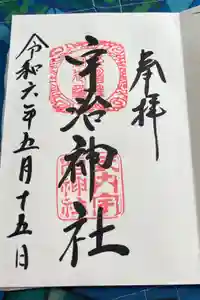 奉拝
宇治神社
令和六年五月十五日